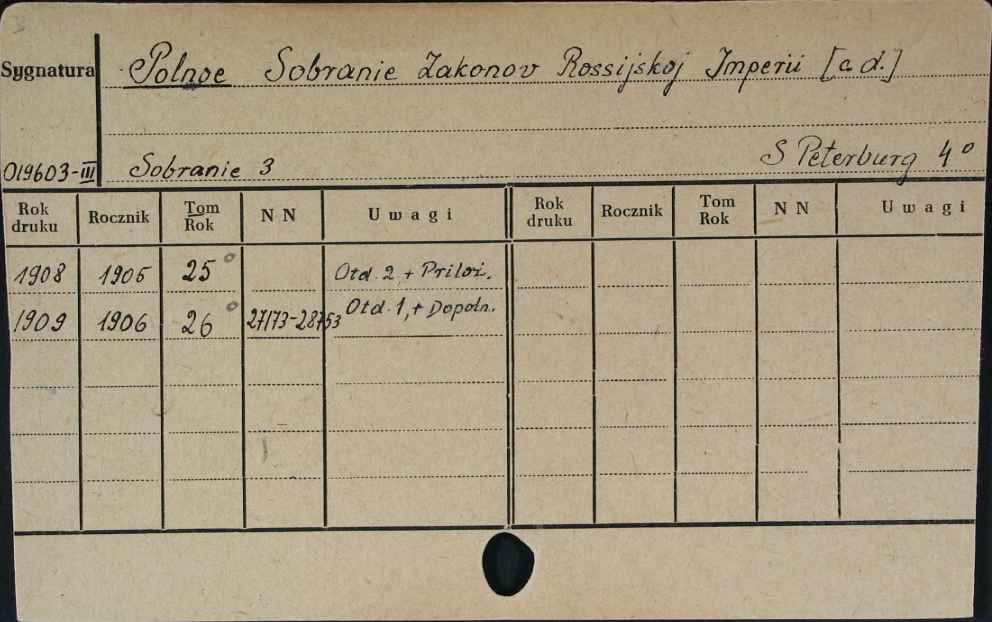 Sygnatura Polnoe Sobranie Zakonov Rossijskoj Imperii [c d.]
S Peterburg 4°
019603-III Sobranie 3
Rok druku Rocznik Tom Rok NN Uwagi Rok druku Rocznik Tom Rok NN Uwagi
1908 1905 25° Otd. 2, + Priloż.
1909 1906 26° 27173-28753 Otd. 1, + Dopoln.